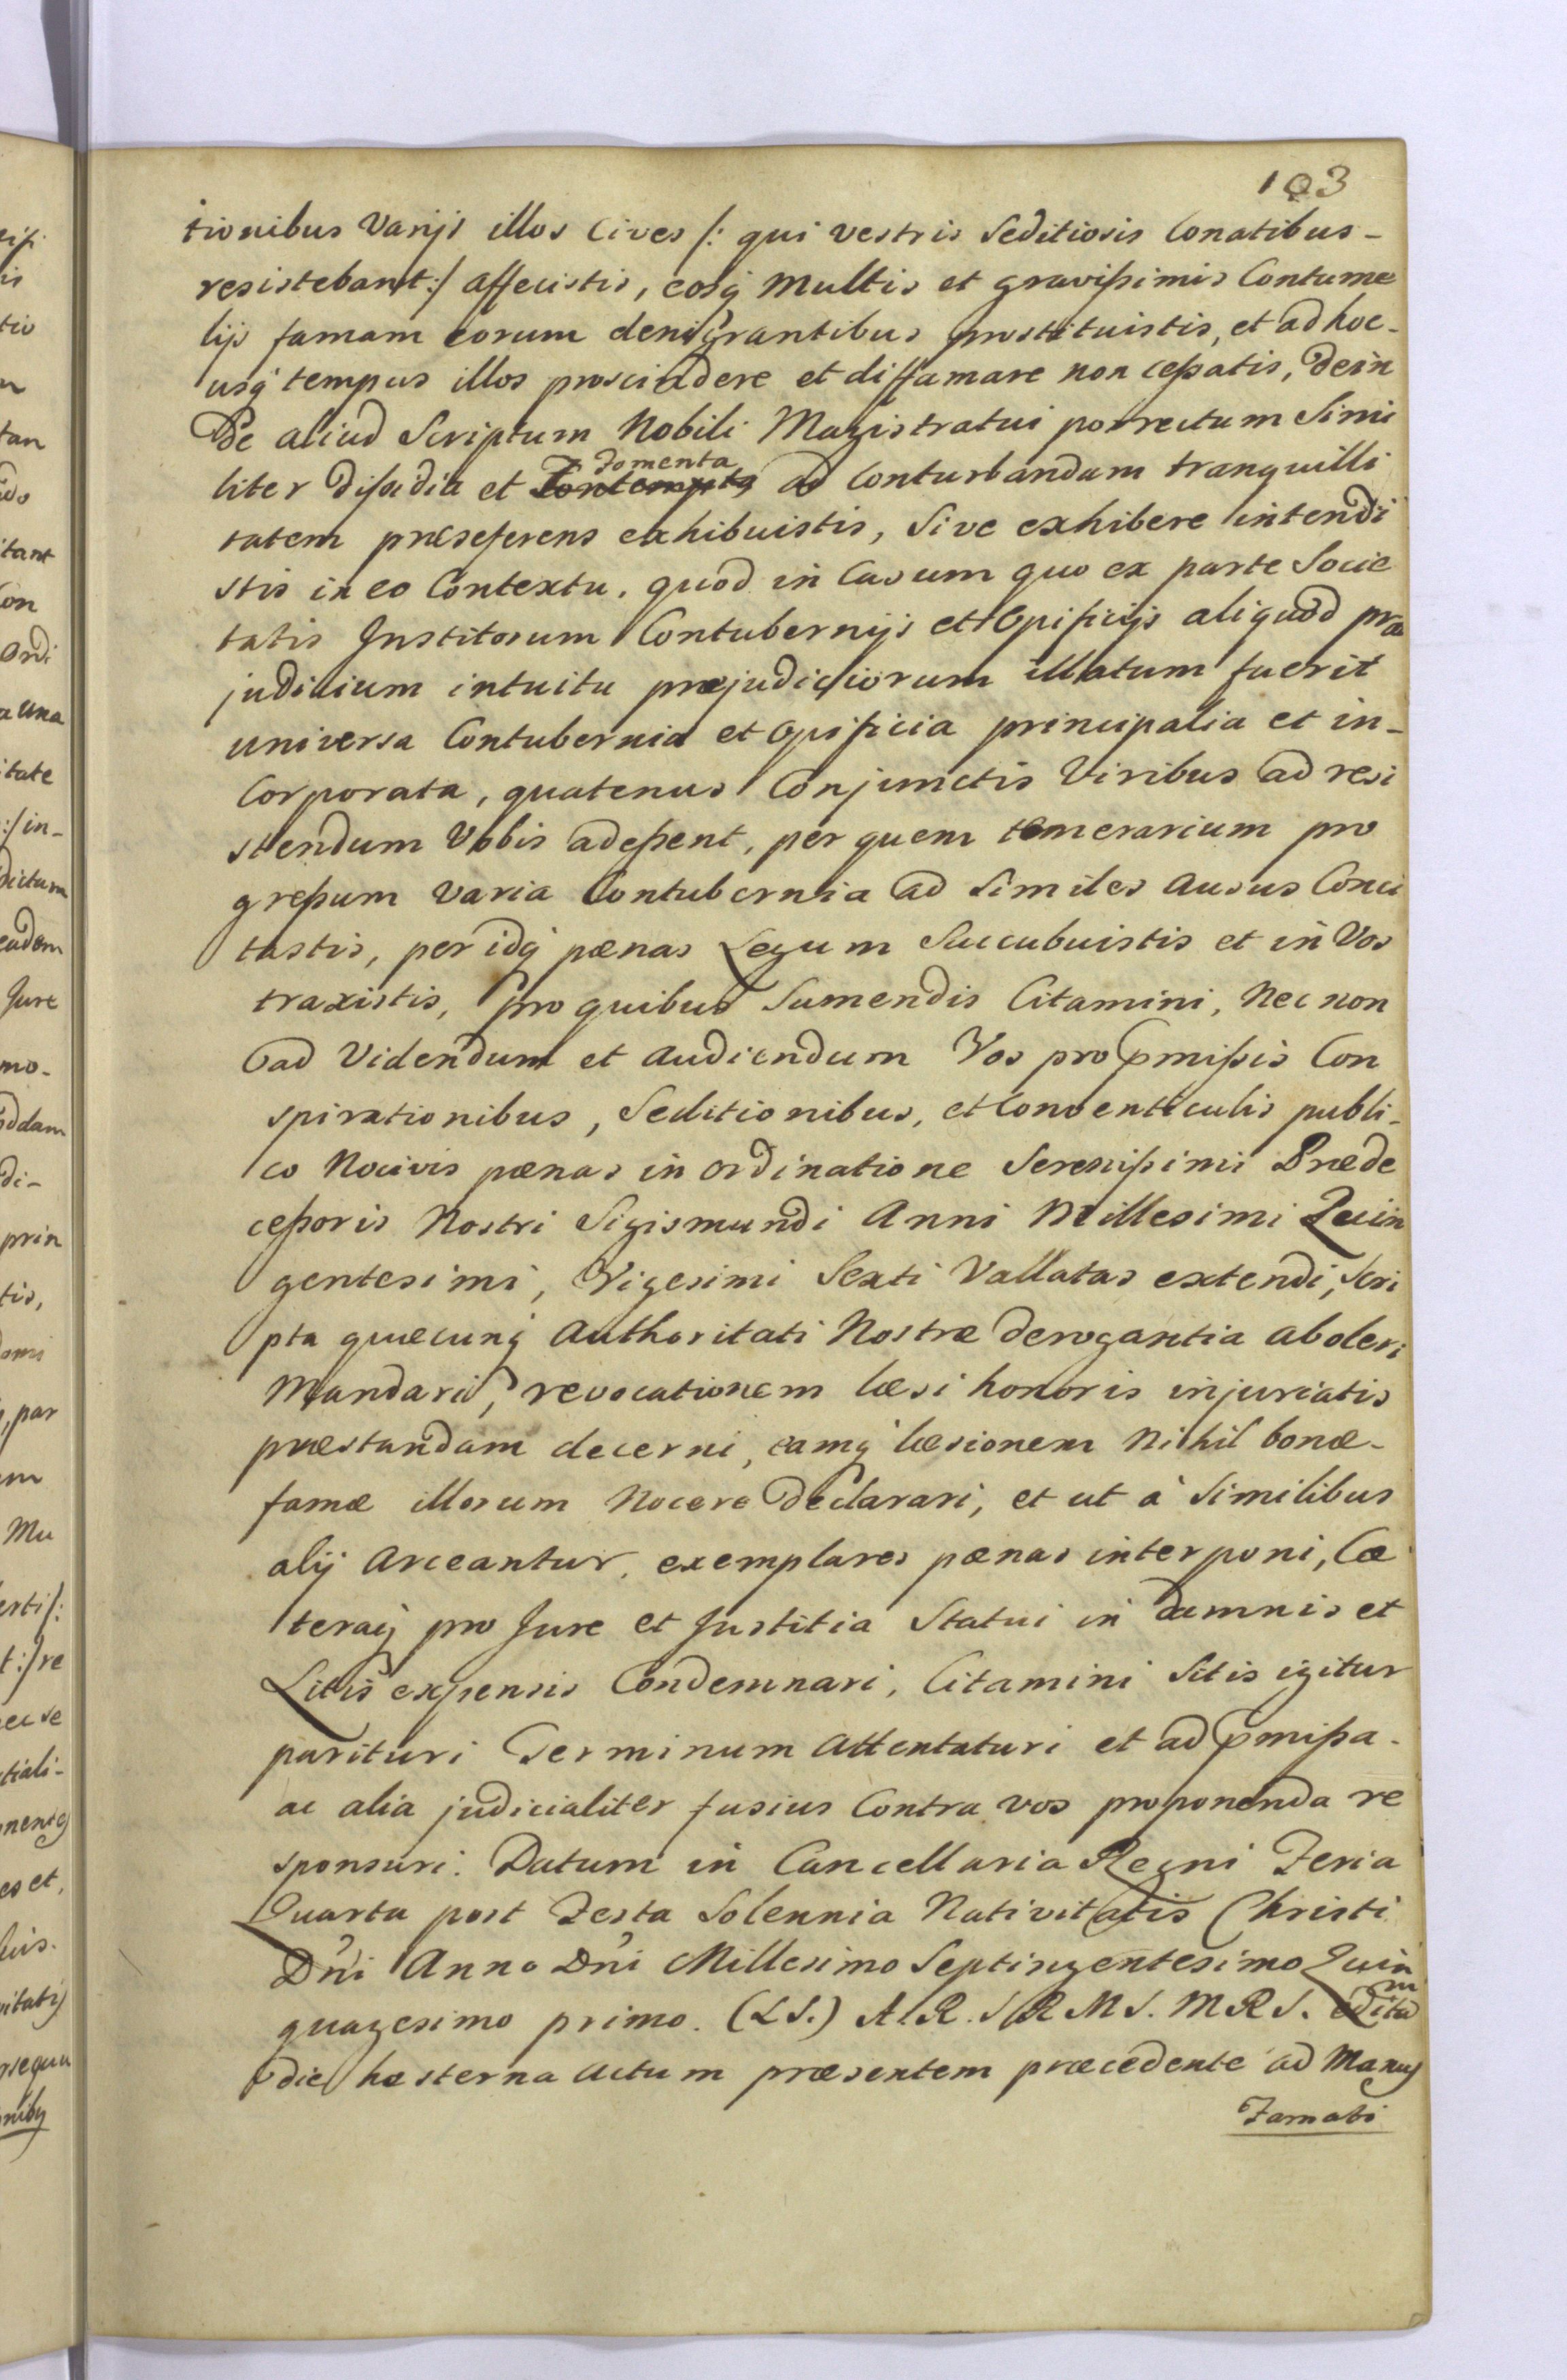 103
tionibus Varijs illos Cives /: qui vestris Seditiosis Conatibus-
resistebant:/ affecistis, eosq multis et gravißimis Contume
lijs famam eorum denigrantibus prostituistis, et ad hoc-
usq tempus illos proscindere et diffamare non ceßatis, dein
de aliud Scriptum Nobili Magistratui porrectum Simi
liter dißidia et Contempta fomenta ad Conturbandam tranquilli
tatem præseferens exhibuistis, Sive exhibere intendi
stis in eo Contextu, quod in Casum quo ex parte Socie
tatis Institorum Contubernijs et Opificijs aliquod præ
judicium intuitu præjudiciorum illatum fuerit
universa Contubernia et Opificia principalia et in-
Corporata, quatenus Conjunctis Viribus ad resi
stendum Vobis adeßent, per quem temerarium pro
greßum varia Contubernia ad Similes Ausus Conci
tastis, per idq pænas Legum Succubuistis et in Vos
traxistis, pro quibus Sumendis Citamini, Nec non
ad Videndum et Audiendum Vos pro pmißis Con
spirationibus, Seditionibus, et Conventiculis publi-
co Nocivis pænas in Ordinatione Serenißimi Præde
ceßoris Nostri Sigismundi Anni Millesimi Quin
gentesimi, Vigesimi Sexti Vallatas extendi, Scri
pta quæcunq Authoritati Nostræ derogantia aboleri
Mandari, revocationem læsi honoris injuriatis
præstandam decerni, eamq læsionem Nihil bonæ-
famæ illorum Nocere declarari, et ut à Similibus
alij Arceantur, exemplares pænas interponi, Cæ
teraq pro Jure et Justitia Statui in damnis et
Litis expensis Condemnari, Citamini Sitis igitur
parituri Terminum Attentaturi et ad pmißa-
ac alia judicialiter fusius Contra vos proponenda re
sponsuri. Datum in Cancellaria Regni Feria
Quarta post Festa Solennia Nativitatis Christi
Dni Anno Dni Millesimo Septingentesimo Quin
quagesimo primo. (LS.) A. R. S R M S. M R S. Editam
die hesterna Actum præsentem præcedente ad Manus
Famati